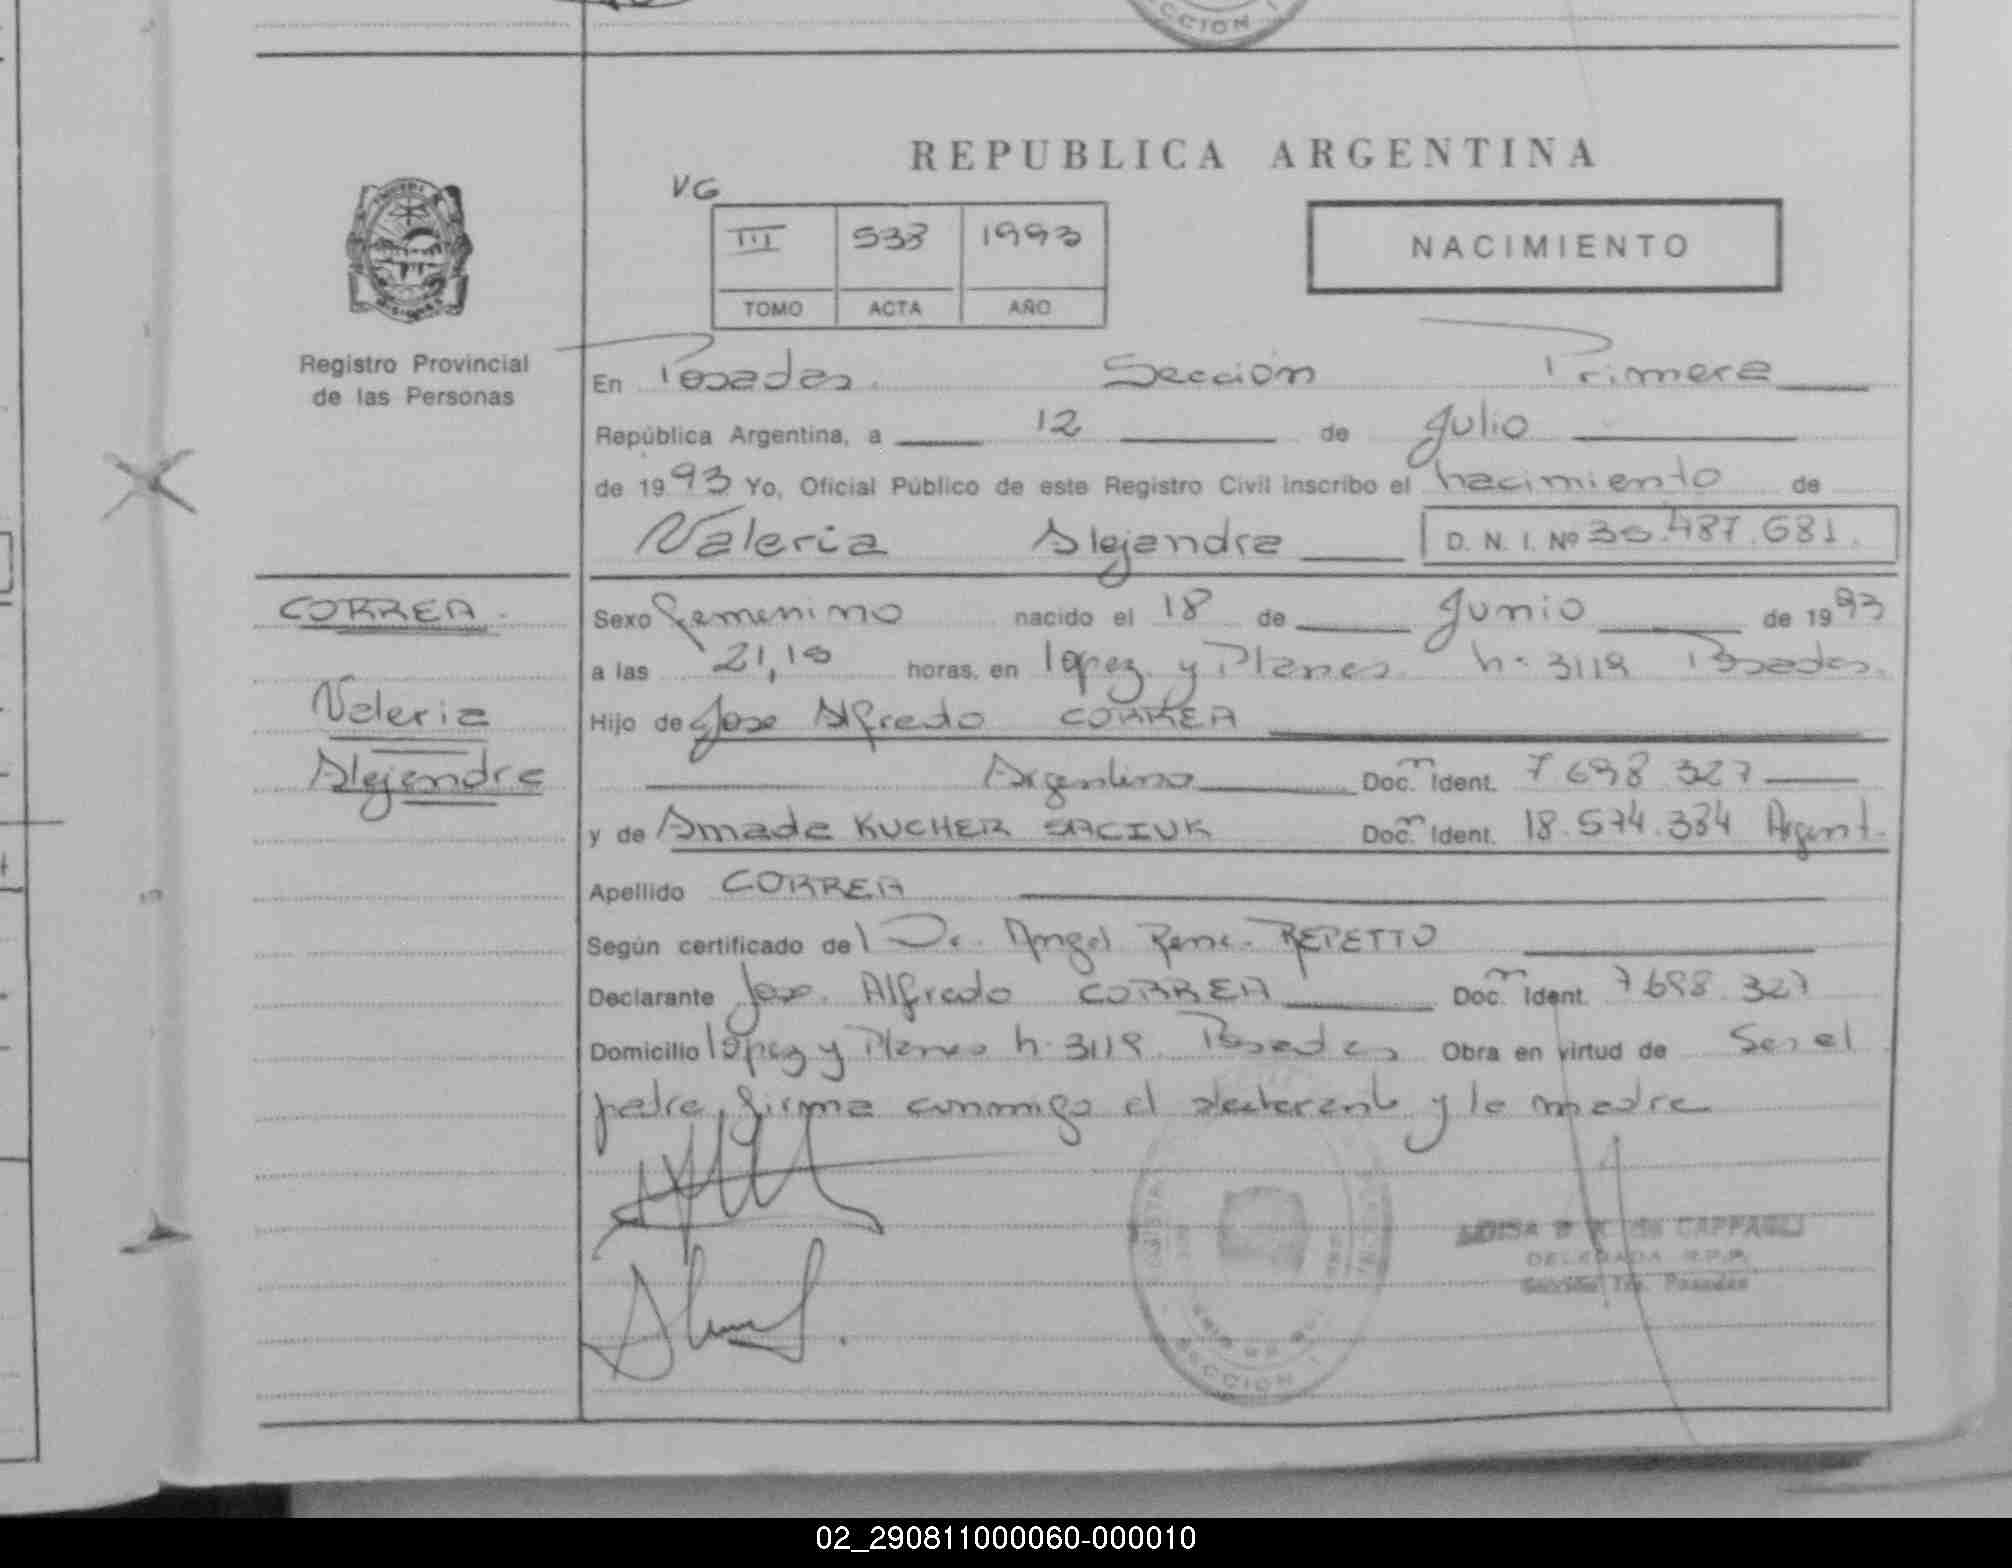 CCION I
REPUBLICA ARGENTINA
VG
III 533 1993
TOMO ACTA AÑO
NACIMIENTO
Registro Provincial
de las Personas
En Posadas. Sección Primera
República Argentina, a 12 de Julio
de 1993 Yo, Oficial Público de este Registro Civil inscribo el nacimiento de
Valeria Alejandra D. N. I. Nº 30.487.681.
CORREA.
Valeria
Alejandra
Sexo femenino nacido el 18 de Junio de 1993
a las 21,10 horas, en lopez y Planes h. 3119 Posadas.
Hijo de Jose Alfredo CORREA
Argentino Doc.m Ident. 7698327
y de Amada KUCHER SACIUK Doc.m Ident. 18.574.334 Argent.
Apellido CORREA
Según certificado del Dr. Angel Rene. REPETTO
Declarante Jose. Alfredo CORREA Doc.m Ident. 7698.327
Domicilio lopez y Planes h. 3119. Posadas Obra en virtud de Ser el
padre, firma conmigo el declarante y la madre
de CAPPAGLI
DELEGADA R.P.P.
Sección 1ra. Posadas
SECCION I
02_290811000060-000010